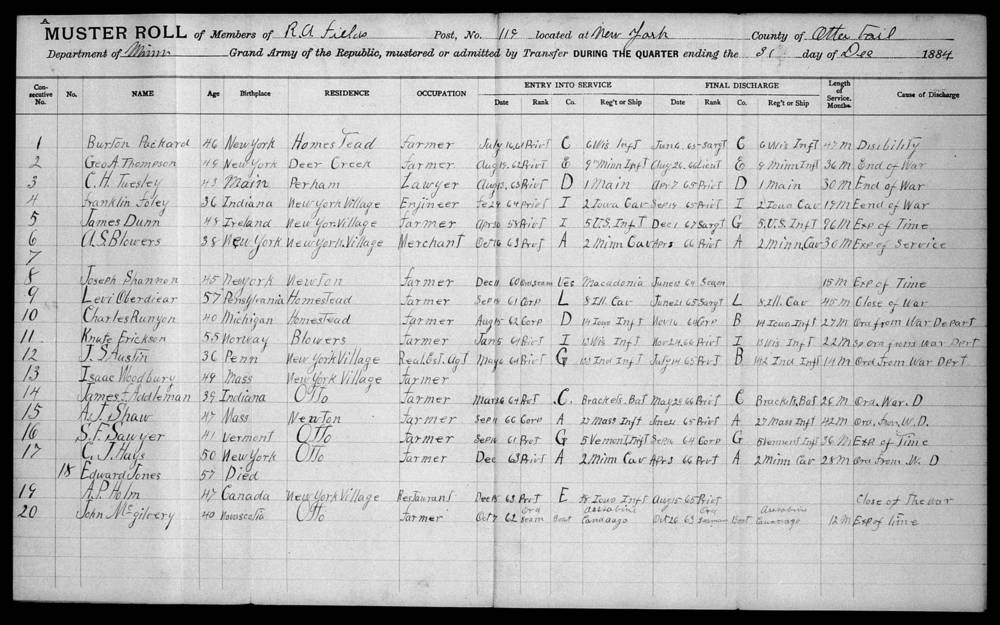 A
MUSTER ROLL of Members of R.A Fields Post, No. 119 located at New York County of Otter Tail
Department of Minn Grand Army of the Republic, mustered or admitted by Transfer DURING THE QUARTER ending the 31 day of Dec 1884
Consecutive No. No. NAME Age Birthplace RESIDENCE OCCUPATION ENTRY INTO SERVICE Date Rank Co. Reg't or Ship FINAL DISCHARGE Date Rank Co. Reg't or Ship Length of Service. Months. Cause of Discharge
1 Burton Packard 46 New York HomesTead Farmer July 16, 61 PrivT C 6 Wis Inft June 6. 65 SargT C 6 Wis Inft 47 M Disibility
2 Geo A. Thompson 48 New York Deer Creek Farmer Aug 19. 62 PrivT E 9 Minn Inft Aug 26. 65 E 9 Minn Inft 36 M End of War
3 C. H. Tuesley 43 Main Perham Lawyer Aug 13. 63 PrivT D 1 Main Apr 7 65 PrivT D 1 Main 30 M End of War.
4 Franklin Foley 36 Indiana New York Village Enjineer Fe 29 64 PrivT I 2 Iowa Cav Sep 19 65 PrivT I 2 Iowa Cav 19 M Eend of War
5 James Dunn 48 Ireland New Yor. Village Farmer Apr 30 58 PrivT I 5 U.S. Inft Dec 1 67 SargT G 5 U.S. Inft 96 M Exp of Time
6 A. S. Blowers 38 New York New York Village MerchanT Oct 16 63 PrvT A 2 Minn Cav Apr 5 66 PrivT A 2 Minn Cav 30 M Exp of Service
7
8 Joseph Shannon 45 New York NewTon Farmer Dec 11 60 Ves Macadonia June 12 64 Seam 15 M Exp of Time
9 Levi Oberdiear 57 Pensylvania Homestead Farmer Sep 19 61 Corp L 8 Ill. Cav June 21 65 SargT L 8 Ill. Cav 45 M Close of War
10 Charles Runyon 40 Michigan Homestead Farmer Aug 15 62 Corp D 14 Iowa Inft Nov 16 64 Corp B 14 Iowa Inft 27 M Ora from War Depart
11 Knute Erickson 55 Norway Blowers Farmer Jan 5 64 PrivT I 13 Wis Inft Nov 24 66 PrivT I 13 Wis Inft 22 M Ora from War Dert
12 J. S Austin 36 Penn New York Village Real. Est. Agt May 6 64 PrivT G Ind Inft July 14 65 PrvT B 142 Ind Inft 14 M Ora from War Dert.
13 Isaac Woodbury 49 Mass New York Village Farmer
14 James F Addleman 39 Indiana Otto Farmer Mar 26 64 PvT C. Brackets. Bat May 28 66 PrivT C Brackets. Bat 26 M Ora. War. D
15 A. J. Shaw 47 Mass NewTon Farmer Sep 11 60 Corp A 27 Mass Inft June 21 65 PrivT A 27 Mass Inft 42 M Ora. from. W. D.
16 S. F. Sawyer 41 Vermont Otto Farmer Sep 16 61 PrvT G 5 Vermont Inft Sep 16 64 Corp G 5 Vermont Inft 36 M Exp. of Time
17 C. J. Hays 50 New York Otto Farmer Dec 63 PrivT A 2 Minn Cav Apr 5 66 PrvT A 2 Minn Cav 28 M Ora from. W. D
18 Edward Jones 57 Died
19 A. P. Holm 42 Canada New York Village Restaurant Dec 15 63 PrvT E Iowa Inft Aug 15 65 PrivT Close of The War
20 John McGilvery 40 Novascotia Otto Farmer Oct 7 62 Ora Seam Boat Oct 26 63 Ora Seaman Boat 12 M Exp of Time